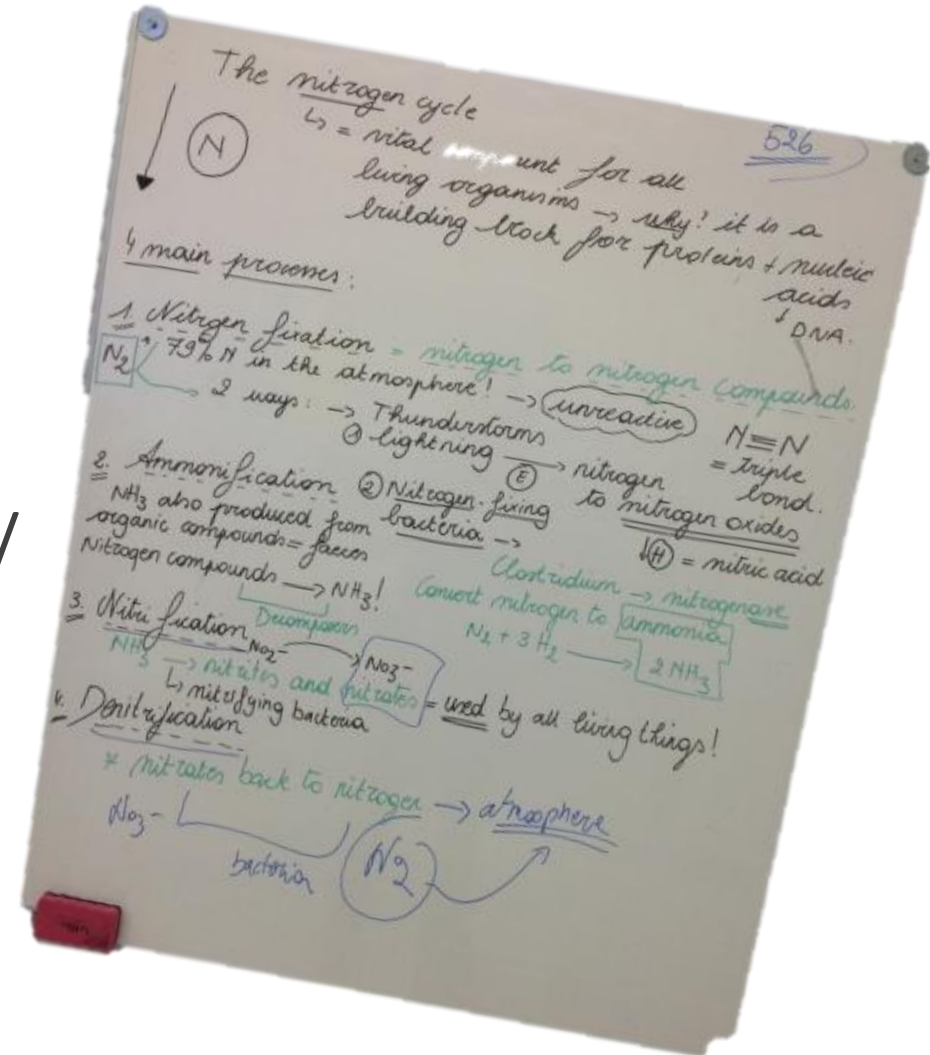 The nitrogen cycle
526
N
↳ = vital unt for all
living organisms → why? it is a
building block for proteins + nucleic
acids
↓ DNA.
4 main processes:
1. Nitrgen fixation = nitrogen to nitrogen compounds.
N2 * 79% N in the atmosphere! → unreactive
N≡N
= triple
bond.
2 ways: → Thunderstorms
① lightning —(E)→ nitrogen
to nitrogen oxides
↓(H) = nitric acid
② Nitrogen-fixing
bacteria →
Clostridium → nitrogenase
Convert nitrogen to ammonia
N2 + 3 H2 → 2 NH3
2. Ammonification
NH3 also produced from
organic compounds = faeces
Nitrogen compounds → NH3!
Decomposers
3. Nitrification
NO2- → NO3-
NH3 → nitrites and nitrates = used by all living things!
↳ nitrifying bacteria
4. Denitrification
* nitrates back to nitrogen → atmosphere
NO3-
bacteria
N2